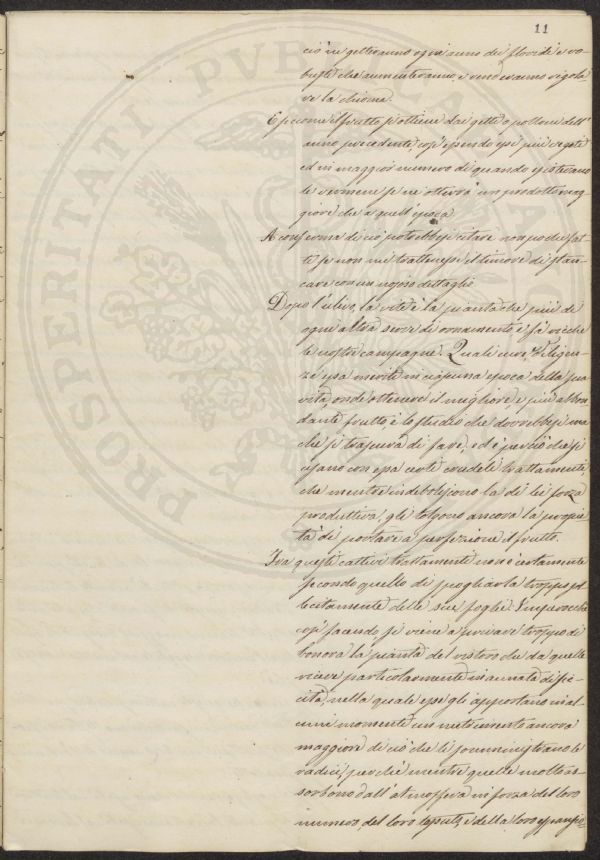 11
ciò ne getteranno ogni anno dei floridi e ro-
busti che aumenteranno e renderanno regola-
re la chioma.
E siccome il frutto si ottiene dai getti o polloni dell'
anno precedente, così essendo essi più vegeti
ed in maggior numero di quando esistevano
le vermene se ne otterrà un prodotto mag-
giore che a quell'epoca.
A conferma di ciò potrebbesi citare non pochi fat-
ti se non me trattenesse il timore di stan-
care con un noioso dettaglio.
Dopo l'ulivo, la vite è la pianta che più di
ogni altra serve di ornamento e fà ricche
le nostre campagne. Quali cure, diligen-
ze essa meriti in ciascuna epoca della sua
vita, onde ottenere il migliore, e più abbon-
dante frutto, è lo studio che dovrebbesi ma
che si trascura di fare, ed è perciò che si
usano con essa certi crudeli trattamenti
che mentre indeboliscono la di lei forza
produttiva, gli tolgono ancora la proprie-
tà di portare a perfezione il frutto.
Fra questi cattivi trattamenti non è certamente
secondo quello di spogliarla troppo sol-
lecitamente delle sue foglie. Imperocchè
così facendo, si viene a privare troppo di
buonora la pianta del ristoro che da quelle
riceve particolarmente in annata di sic-
cità, nella quale esse gli apportano in al-
cuni momenti un nutrimento ancora
maggiore di ciò che li somministrano le
radici, perchè mentre quelle molto as-
sorbono dall'atmosfera in forza del loro
numero, del loro tessuto, e della loro espansio-
PROSPERITATI PUBLICAE